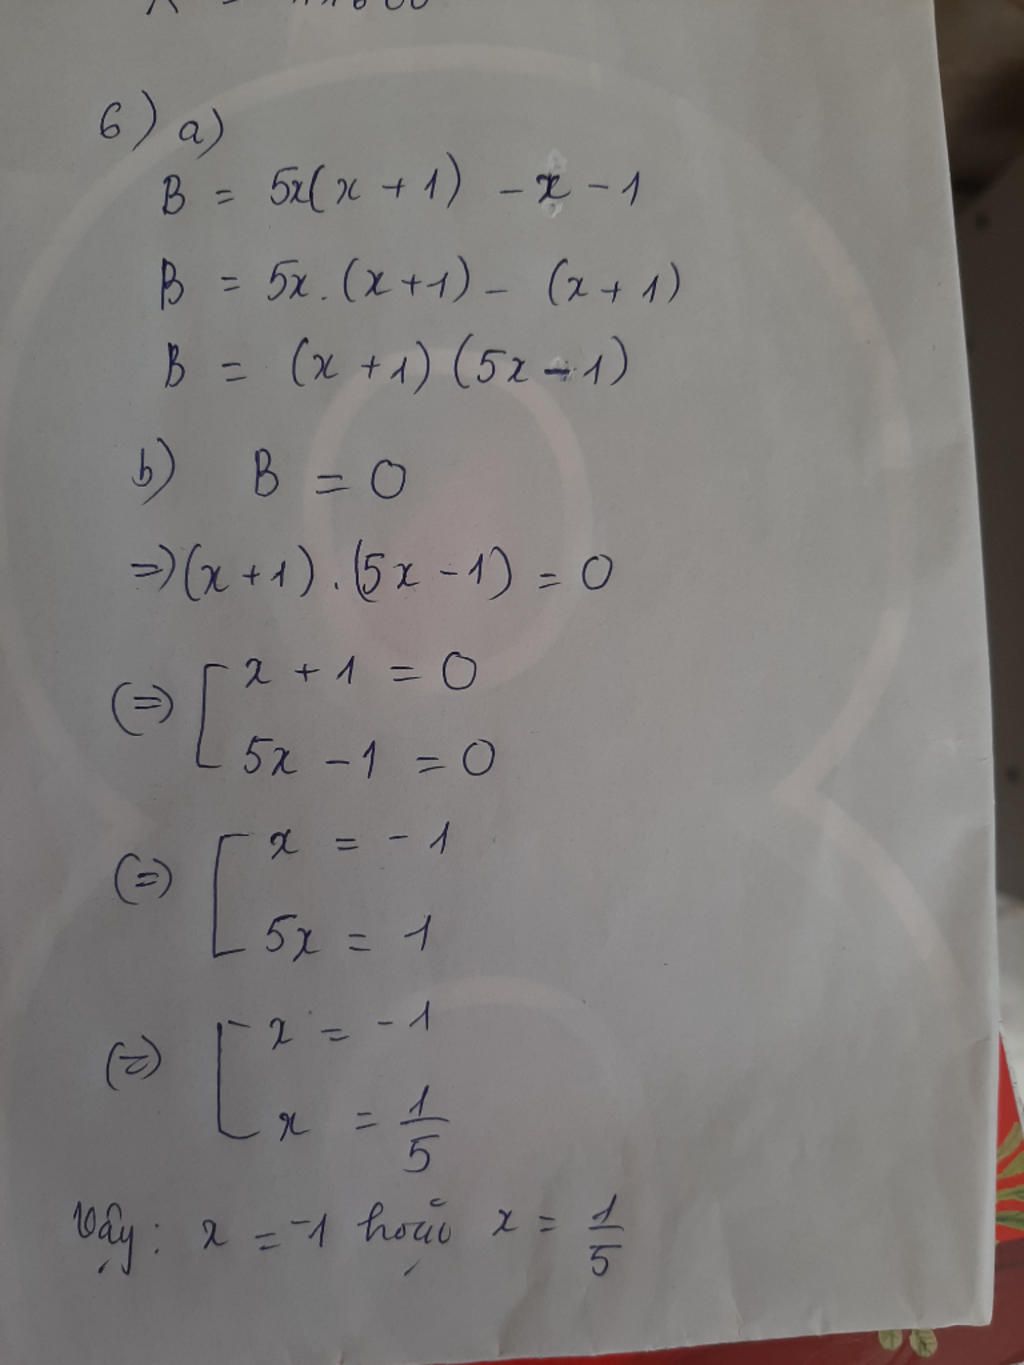 6) a)
B = 5x(x + 1) - x - 1
B = 5x . (x + 1) - (x + 1)
B = (x + 1) (5x - 1)
b) B = 0
=> (x + 1) . (5x - 1) = 0
(=) [ x + 1 = 0
5x - 1 = 0
(=) [ x = -1
5x = 1
(=) [ x = -1
x = 1/5
Vậy : x = -1 hoặc x = 1/5